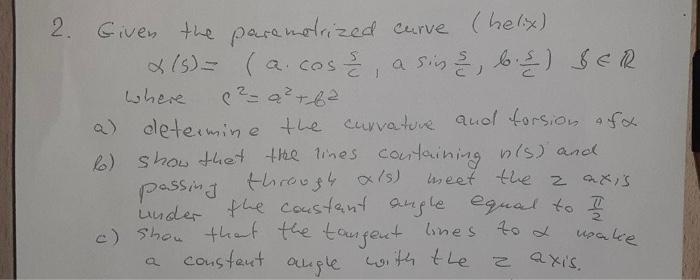 2. Given the parametrized curve (helix)
α(s) = (a · cos s/c, a sin s/c, b · s/c) s ∈ ℝ
where c² = a² + b²
a) determine the curvature and torsion of α
b) show that the lines containing n(s) and
passing through α(s) meet the z axis
under the constant angle equal to π/2
c) show that the tangent lines to α make
a constant angle with the z axis.